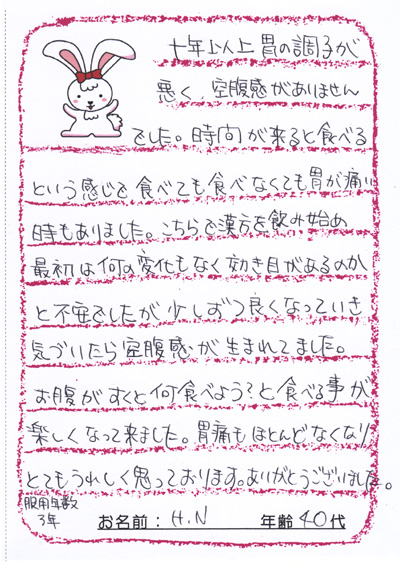 十年以上胃の調子が
悪く、空腹感がありません
でした。時間が来ると食べる
という感じで食べても食べなくても胃が痛い
時もありました。こちらで漢方を飲み始め
最初は何の変化もなく効き目があるのか、
と不安でしたが少しずつ良くなっていき
気づいたら空腹感が生まれてました。
お腹がすくと何食べよう?と食べる事が
楽しくなって来ました。胃痛もほとんどなくなり
とてもうれしく思っております。ありがとうございました。
服用年数
3年
お名前：H.N 年齢40代